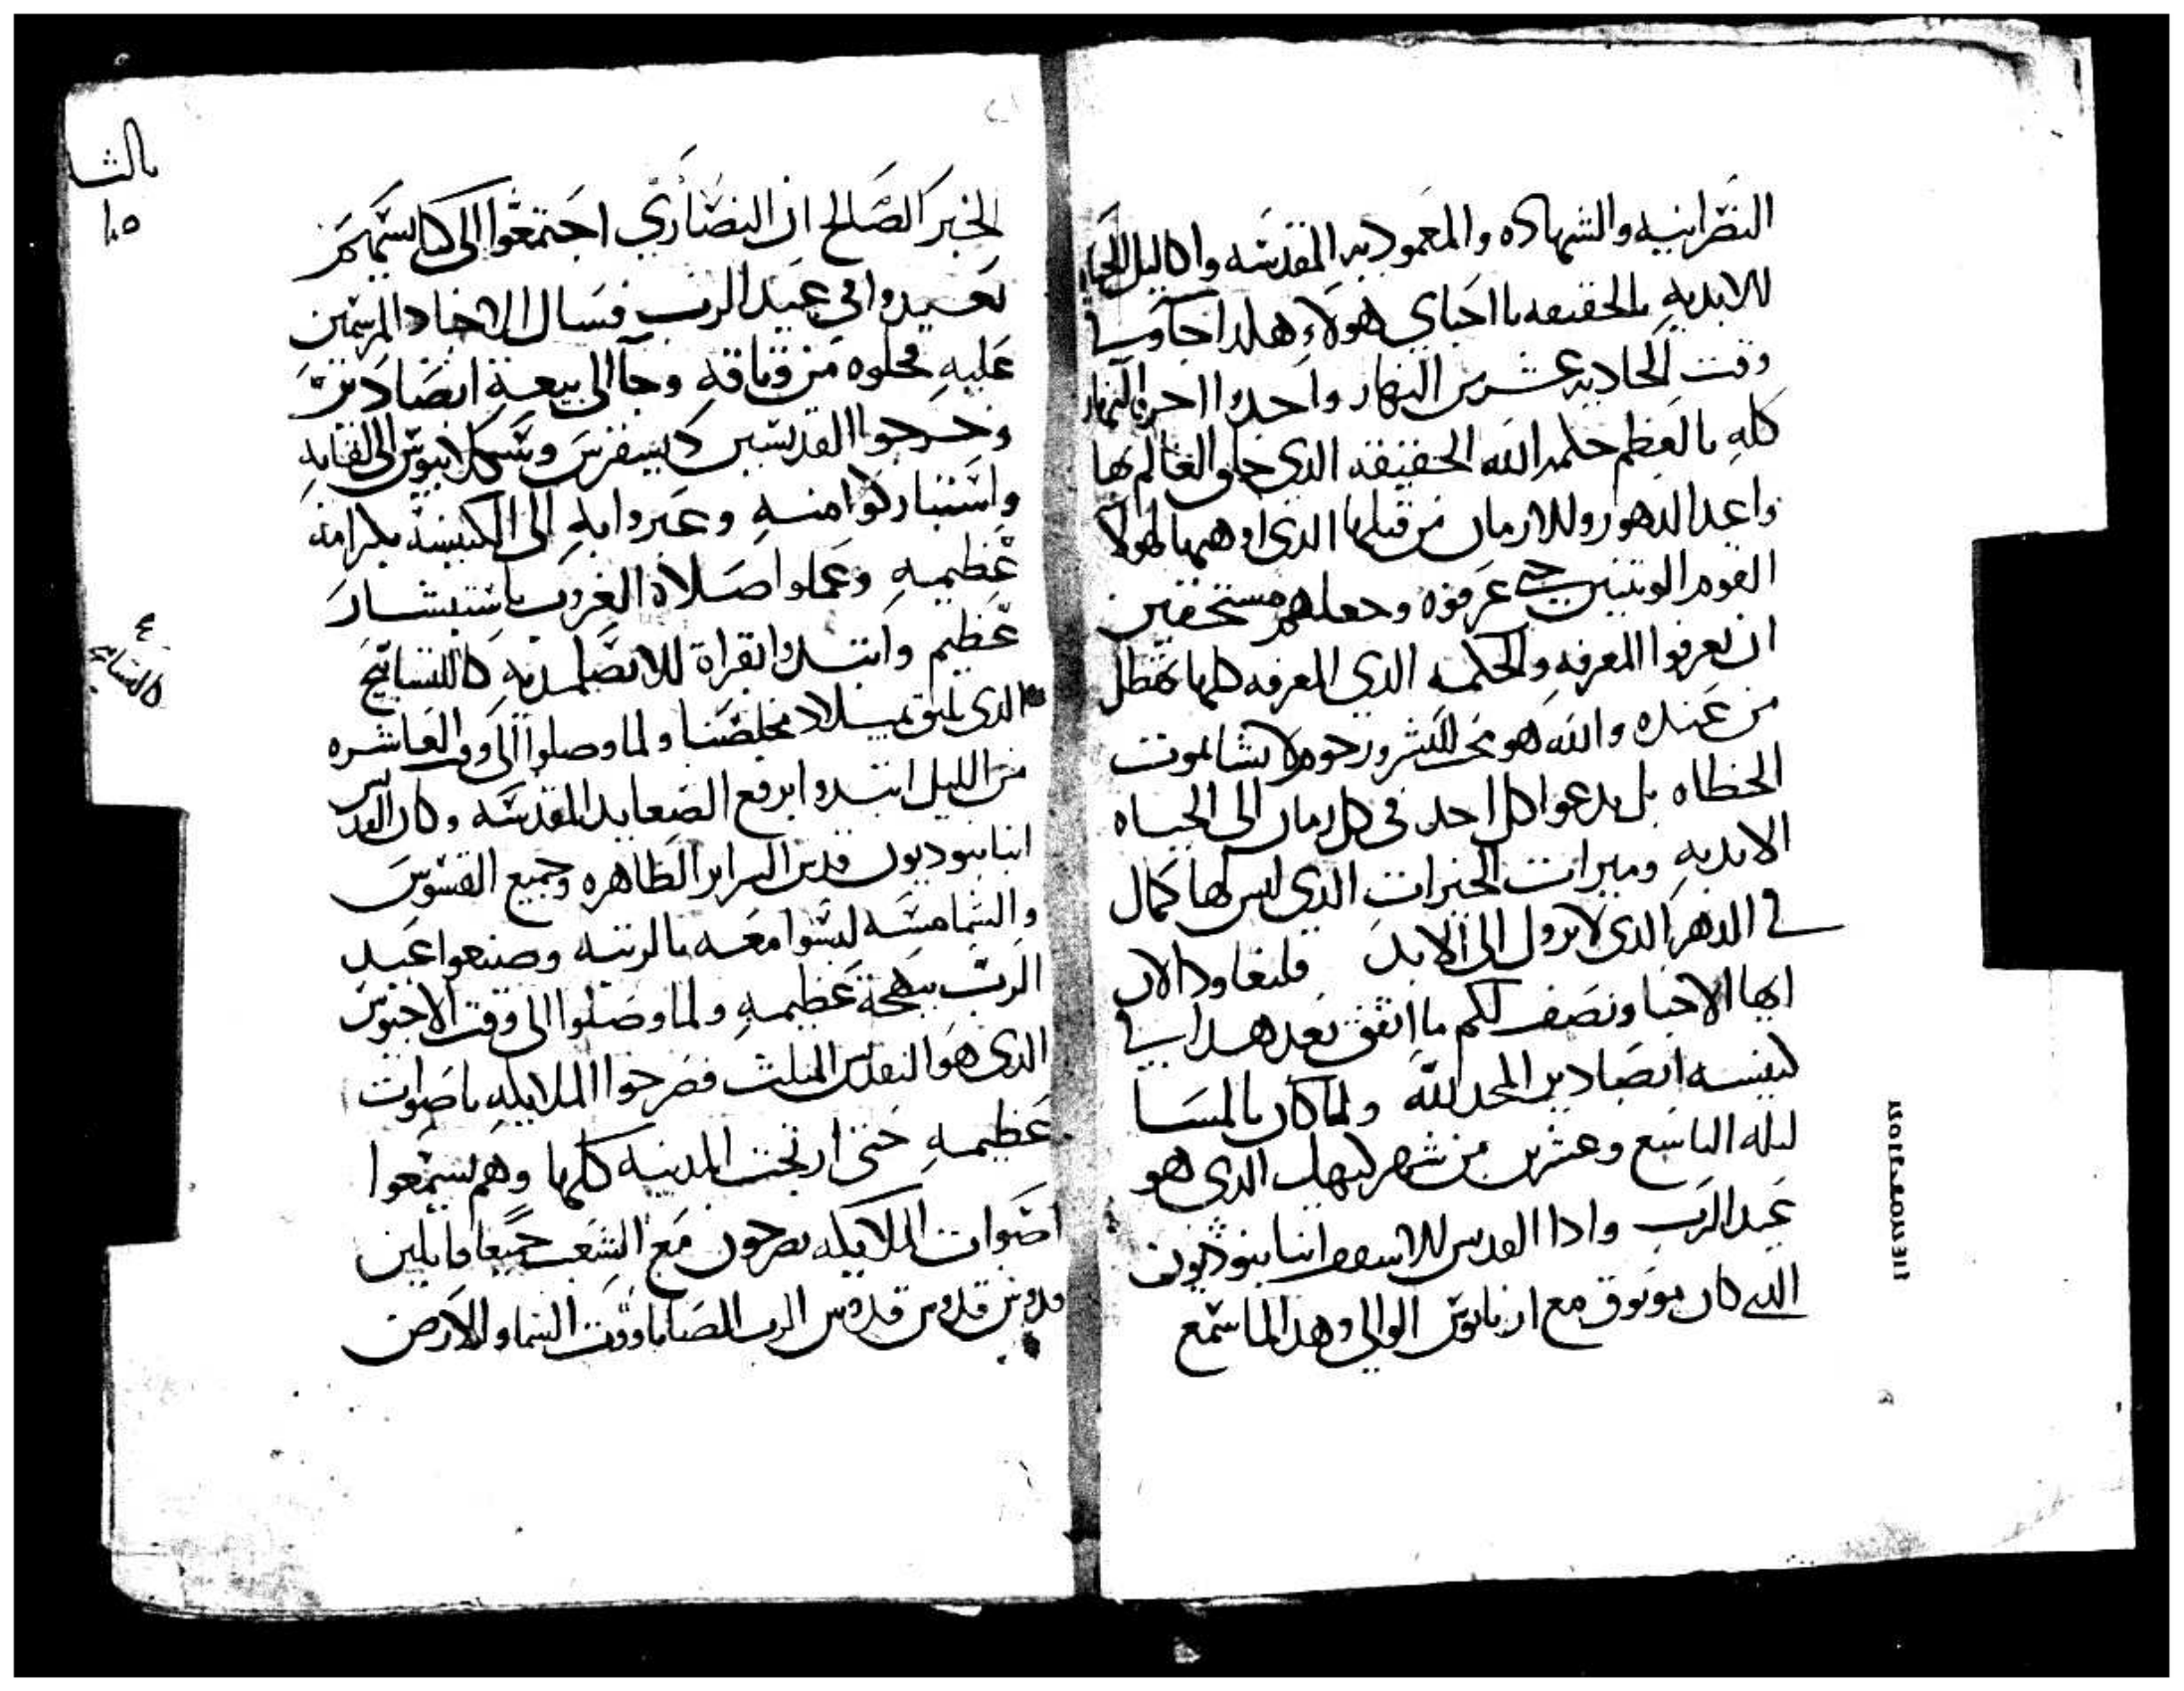 النصرانيه والشهاده والمعموديه المقدسه واكاليل الحياه
الابديه بالحقيقه يا احباي هولاء هكدا جاوسا
وقت الحاديه عشر من النهار واخدوا اجره النهار
كله يا لعظم حكمه الله الحقيقه الدي خلق العالم بها
واعد الدهور والازمان من قبلها الدي اوهبها لهولا
القوم الوتنيين حتي عرفوه وجعلهم مستحقين
ان يعرفوا المعرفه والحكمه الدي المعرفه كلها تهطل
من عنده والله هو محب البشر ورحوم لا يشا موت
الخطاه بل يدعوا كل احد في كل زمان الى الحياه
الابديه وميرات الخيرات الدي ليس لها كمال
في الدهر الدي لا يزول الى الابد فلنعاود الان
ايها الاحبا ونصف لكم ما اتفق بعد هدا في
كنيسه ابصاديه المجد لله ولما كان بالمسا
ليله التاسع وعشرين من شهر كيهك الدي هو
عيد الرب وادا القديس الاسقف انبا بنوديون
الدي كان موتوق مع اريانوس الوالي وهدا لما سمع
الخبر الصالح ان النصاري اجتمعوا الى كنايسهم
يعيدوا في عيد الرب فسال الاجناد المرسمين
عليه فحلوه من وتاقه وجا الى بيعة ابصاديه
وخرجوا القديسين ديسقرس وسكلابيوس الى لقايه
واستباركوا منه وعبروا به الى الكنيسه بكرامه
عظيمه وعملوا صلاة الغروب باستبشار
عظيم وابتدوا بقراة الابصلمديه كالتسابيح
الدي يليق بميلاد مخلصنا ولما وصلوا الى وقت العاشره
من الليل ابتدوا برفع الصعايد المقدسه وكان القديس
انبا بنوديون قدس السراير الطاهره وجميع القسوس
والشمامسه لبسوا معه بالزينه وصنعوا عيد
الرب ببهجة عظيمه ولما وصلوا الى وقت الاجيوس
الدي هو التقديس المتلت فصرخوا الملايكه باصوات
عظيمه حتى ارتجت المدينه كلها وهم يسمعوا
اصوات الملايكه يصرخون مع الشعب جميعا قايلين
قدوس قدوس قدوس الرب الصاباووت السما والارض